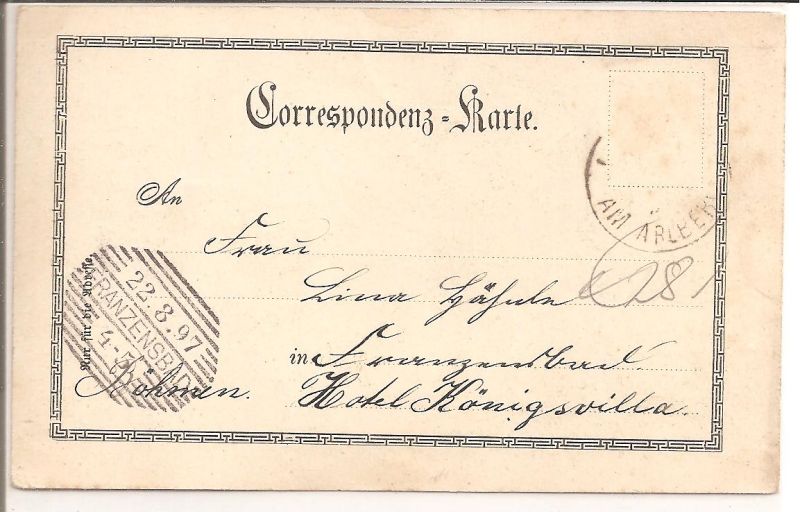 Correspondenz-Karte.
An
Frau
Lina Hähnle
in Franzensbad.
Böhmen. Hotel Königsvilla.
Nur für die Adresse
22.8.97
FRANZENSBAD
4-5
AM ARLBERG
281